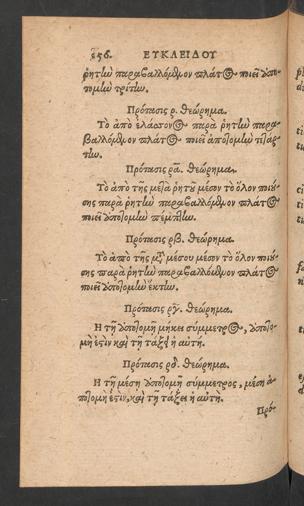 256. ΕΥΚΛΕΙΔΟΥ
ῥητὴν παραβαλλόμενον πλάτος ποιεῖ ἀπο-
τομὴν τρίτην.
Πρότασις ρ. θεώρημα.
Τὸ ἀπὸ ἐλάσσονος παρὰ ῥητὴν παρα-
βαλλόμενον πλάτος ποιεῖ ἀποτομὴν τετάρ-
την.
Πρότασις ρα. θεώρημα.
Τὸ ἀπὸ τῆς μετὰ ῥητοῦ μέσον τὸ ὅλον ποιού-
σης παρὰ ῥητὴν παραβαλλόμενον πλάτος
ποιεῖ ἀποτομὴν πέμπτην.
Πρότασις ρβ. θεώρημα.
Τὸ ἀπὸ τῆς μετὰ μέσου μέσον τὸ ὅλον ποιού-
σης παρὰ ῥητὴν παραβαλλόμενον πλάτος
ποιεῖ ἀποτομὴν ἕκτην.
Πρότασις ργ. θεώρημα.
Η τῇ ἀποτομῇ μήκει σύμμετρος, ἀποτο-
μή ἐστιν, καὶ τῇ τάξει ἡ αὐτή.
Πρότασις ρδ. θεώρημα.
Η τῇ μέσῃ ἀποτομῇ σύμμετρος, μέση ἀ-
ποτομή ἐστιν, καὶ τῇ τάξει ἡ αὐτή.
Πρό-